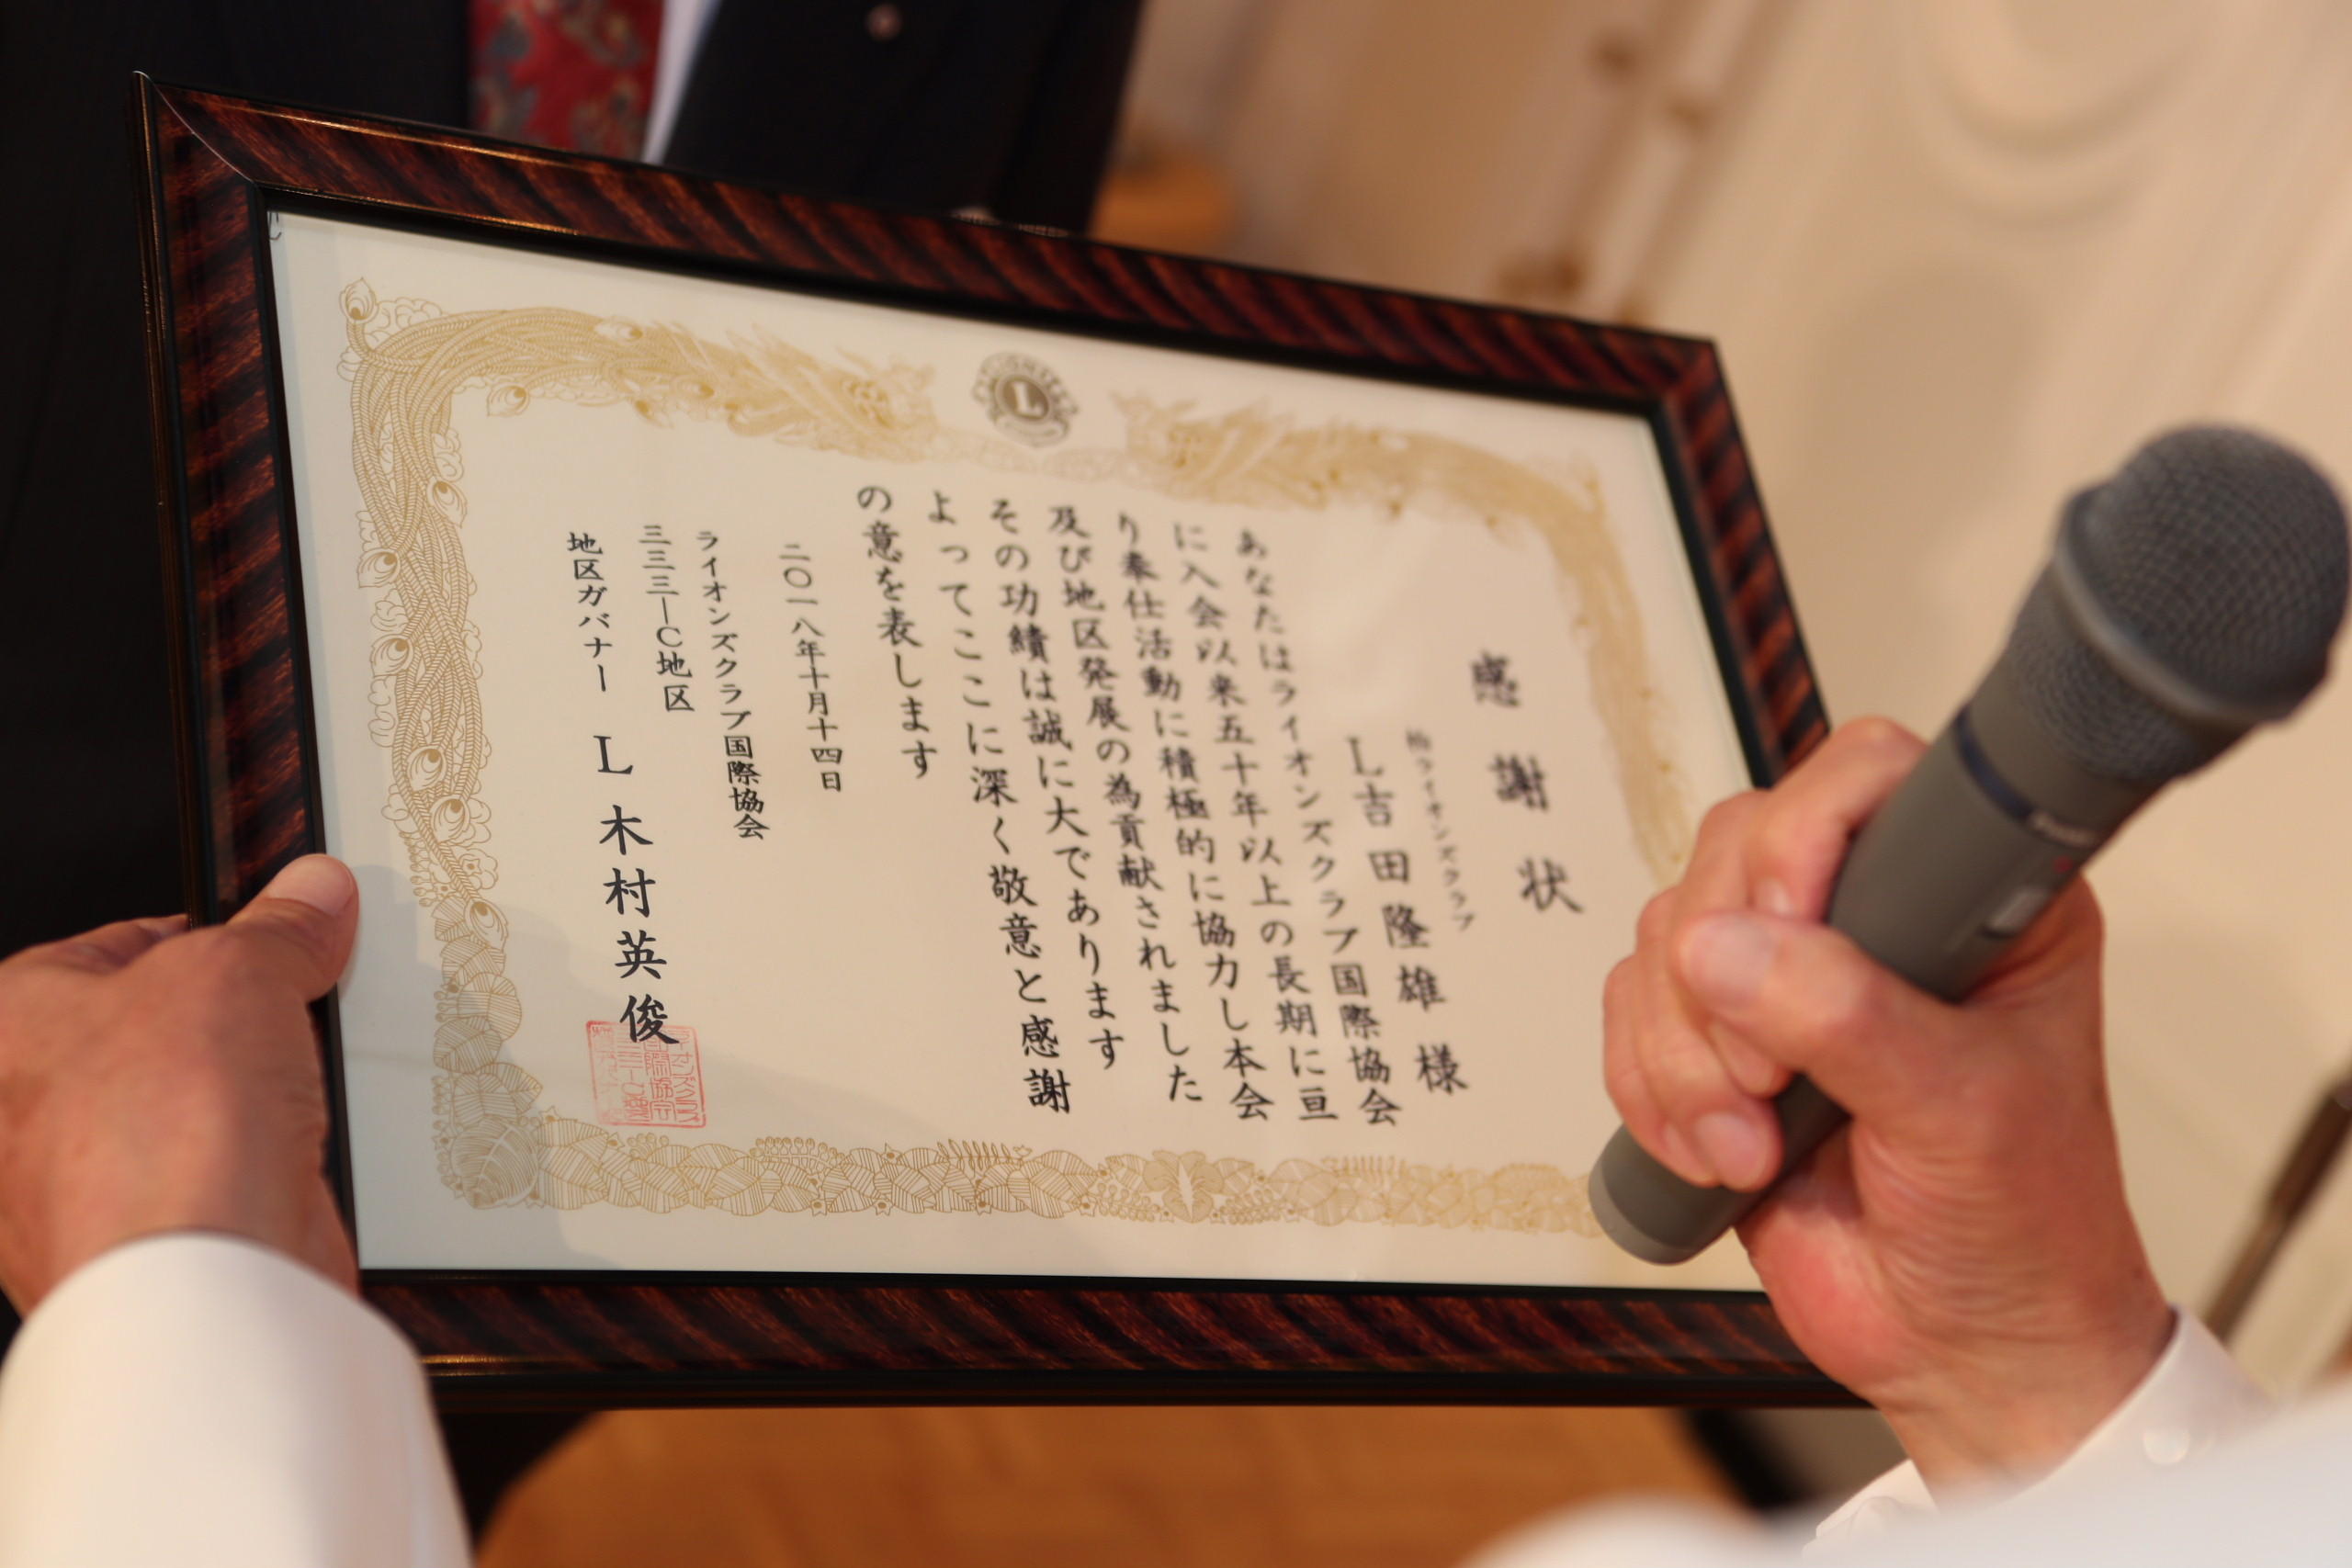 感謝状
ライオンズクラブ
L吉田隆雄様
あなたはライオンズクラブ国際協会
に入会以来五十年以上の長期に亘
り奉仕活動に積極的に協力し本会
及び地区発展の為貢献されました
その功績は誠に大であります
よってここに深く敬意と感謝
の意を表します
二〇一八年十月十四日
ライオンズクラブ国際協会
三三三―C地区
地区ガバナー L木村英俊
L